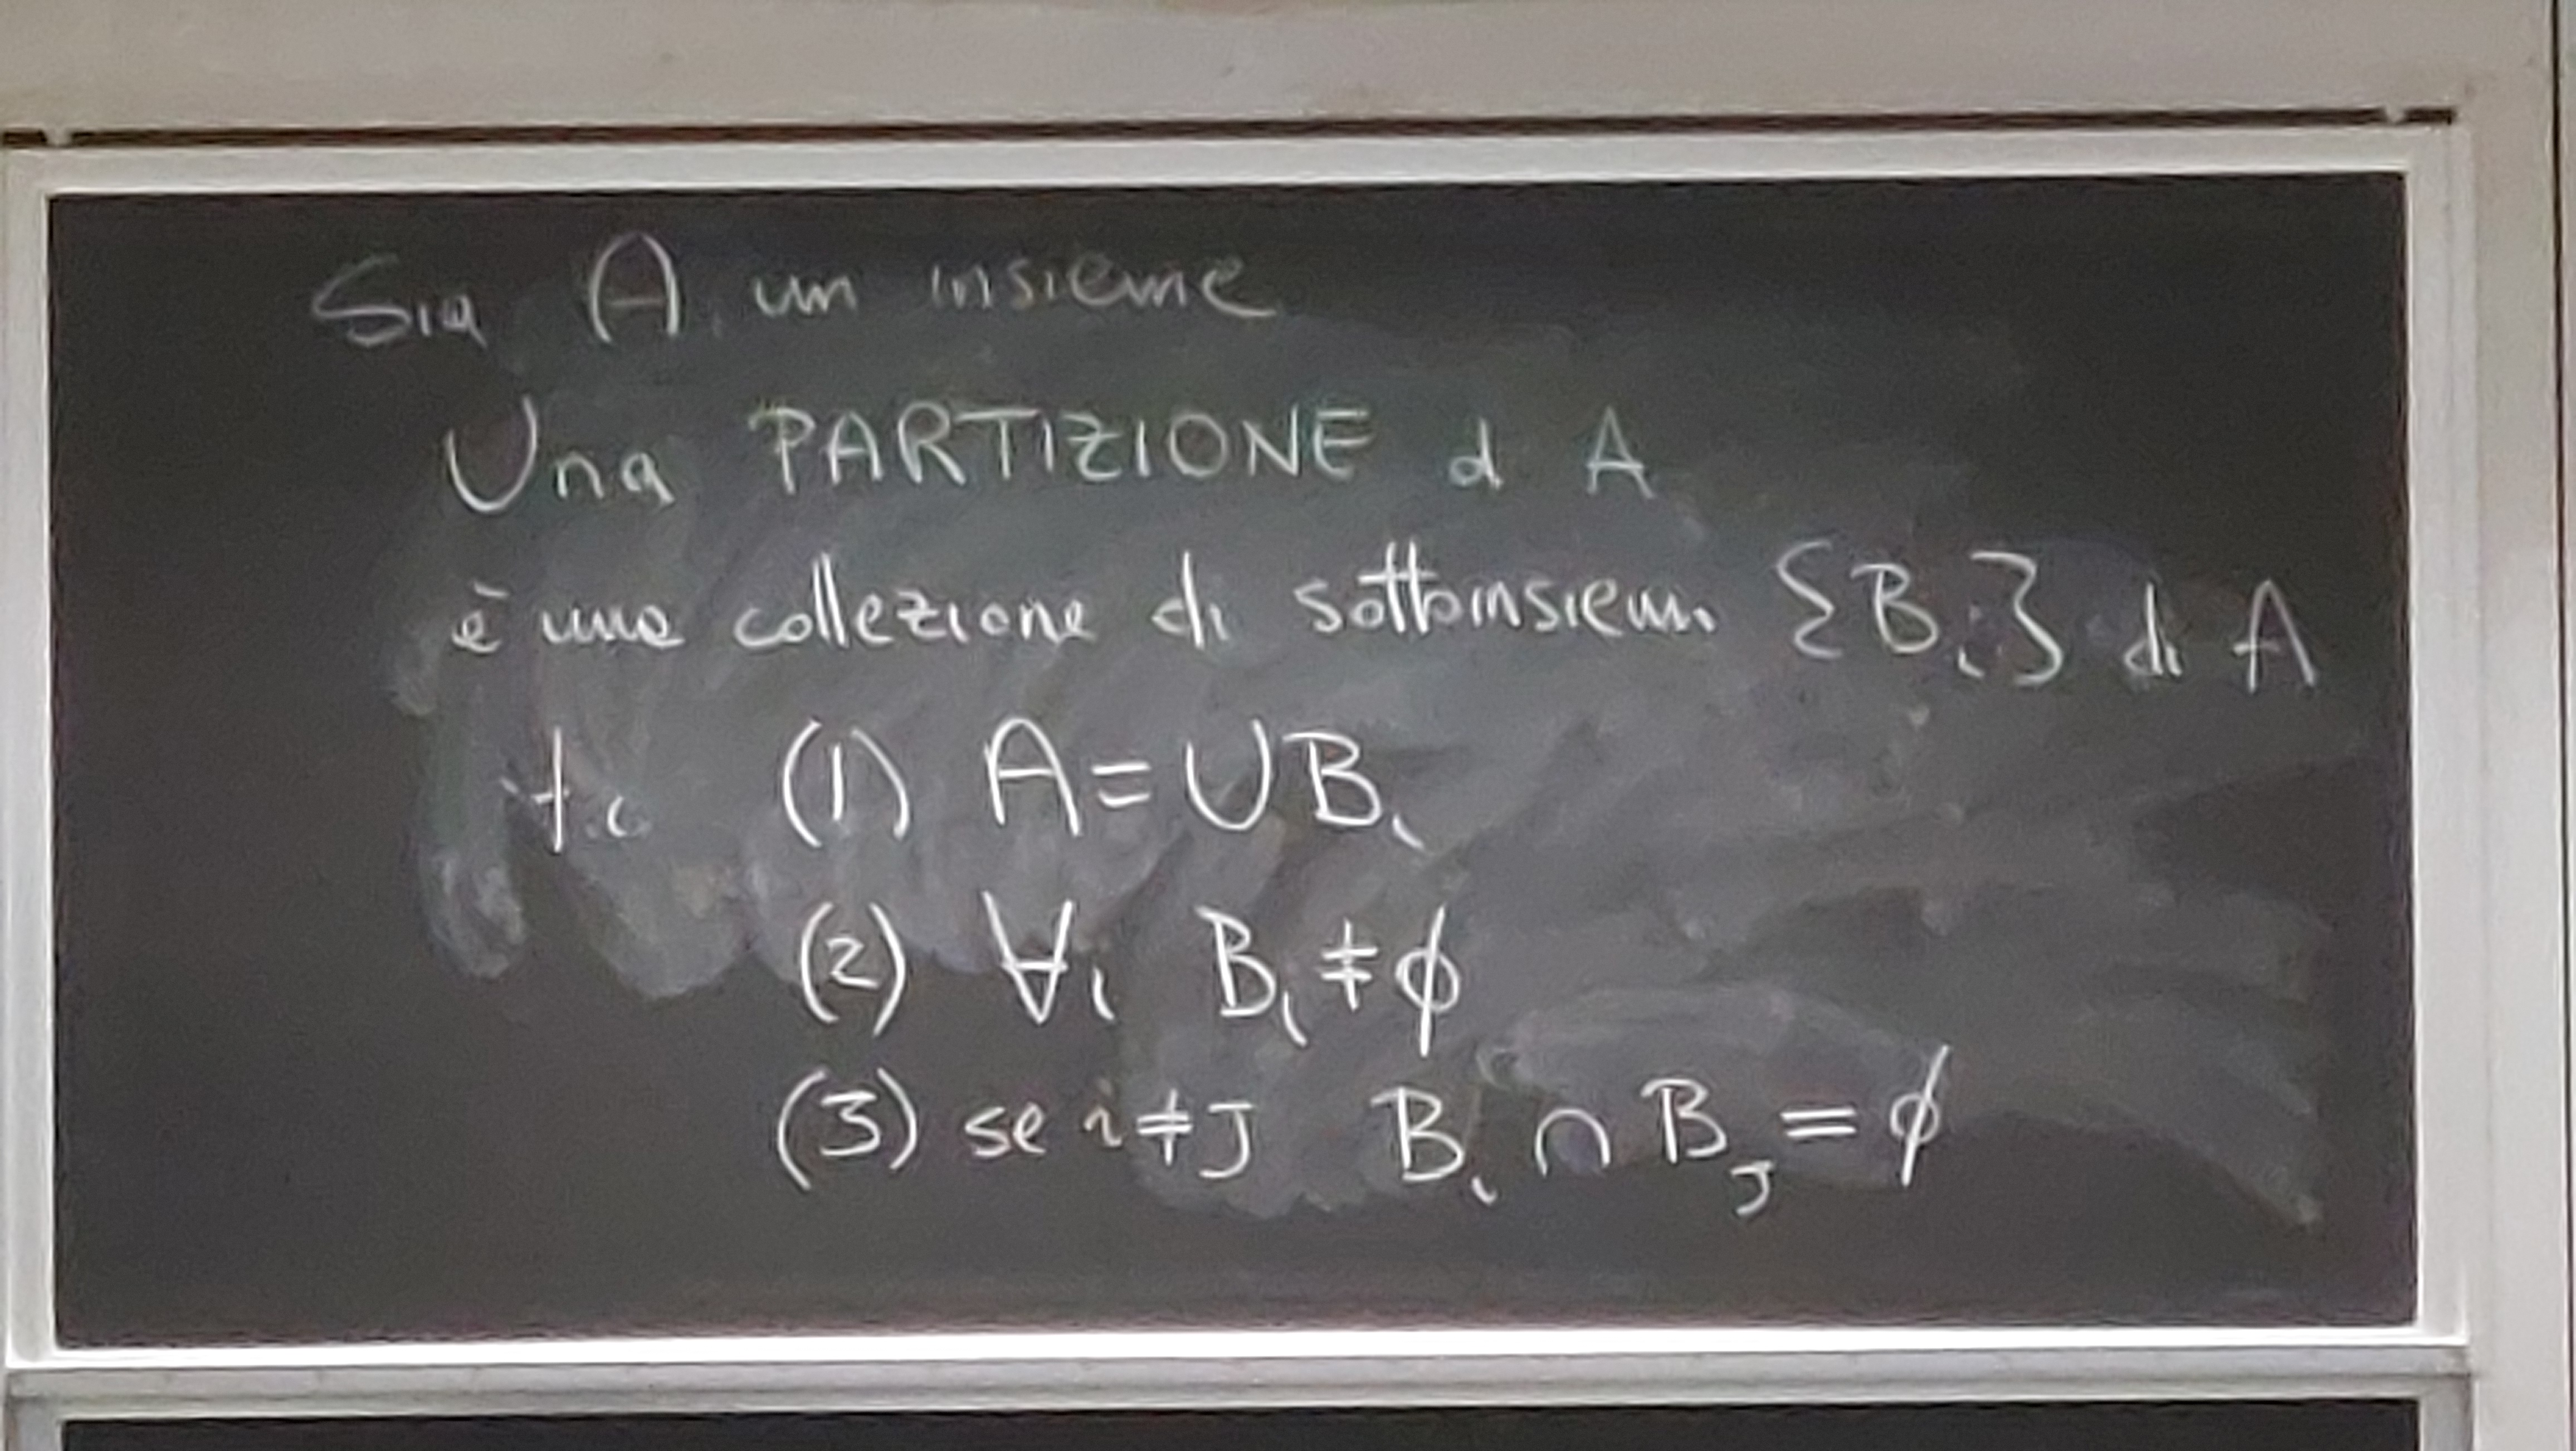 Sia A un insieme
Una PARTIZIONE di A
è una collezione di sottoinsiemi {Bᵢ} di A
t.c (1) A = ∪Bᵢ
(2) ∀i Bᵢ ≠ ∅
(3) se i ≠ J Bᵢ ∩ B_J = ∅